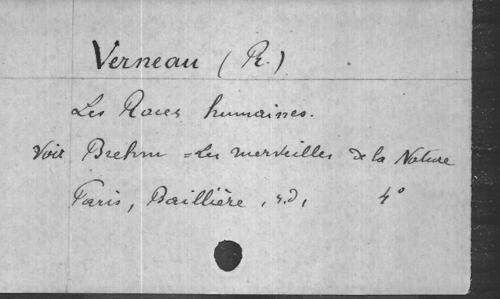 Verneau (R.)
Les Races humaines.
Voir Brehm = Les merveilles de la Nature
Paris, Baillière, s.d, 4°